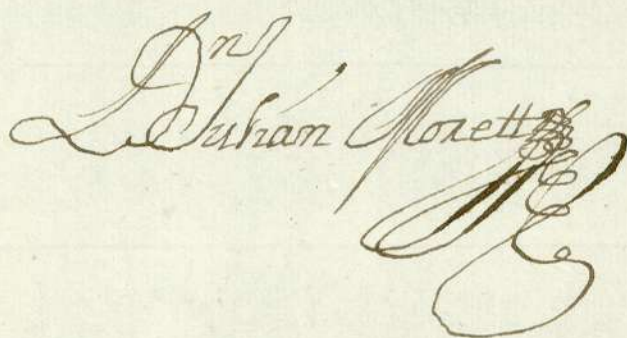 Dn Julián Morett